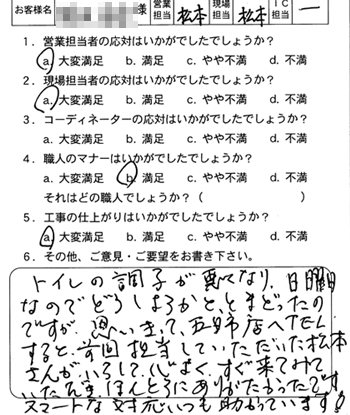 お客様名 様 営業担当 松本 現場担当 松本 IC担当 ―
1. 営業担当者の応対はいかがでしたでしょうか?
a. 大変満足 b. 満足 c. やや不満 d. 不満
2. 現場担当者の応対はいかがでしたでしょうか?
a. 大変満足 b. 満足 c. やや不満 d. 不満
3. コーディネーターの応対はいかがでしたでしょうか?
a. 大変満足 b. 満足 c. やや不満 d. 不満
4. 職人のマナーはいかがでしたでしょうか?
a. 大変満足 b. 満足 c. やや不満 d. 不満
それはどの職人でしょうか?( )
5. 工事の仕上がりはいかがでしたでしょうか?
a. 大変満足 b. 満足 c. やや不満 d. 不満
6. その他、ご意見・ご要望をお書き下さい。
トイレの調子が悪くなり、日曜日
なのでどうしようかと、とまどったの
ですが、思いきって、五日市店へTEL
すると、前回担当していただいた松本
さんがいらして、心よく、すぐ来てみて
いただき、ほんとうにありがたかったです。
スマートな対応いつも助かっています!